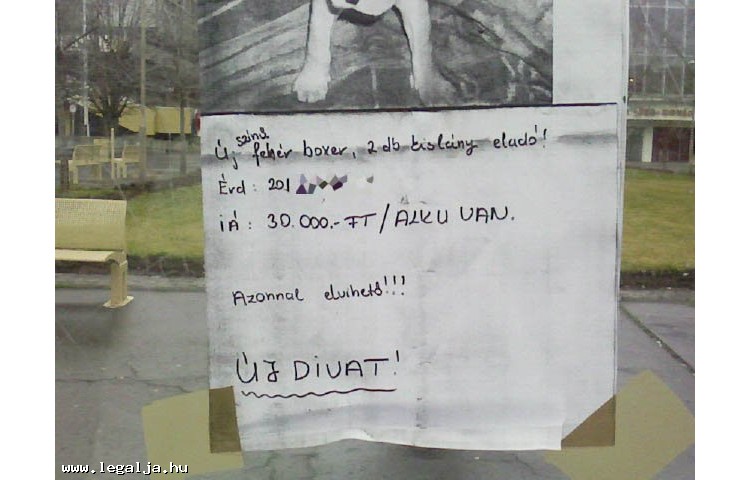 Új színű fehér boxer, 2 db kislány eladó!
Érd: 201
IÁ: 30.000.-FT/ALKU VAN.
Azonnal elvihető!!!
ÚJ DIVAT!
www.legalja.hu